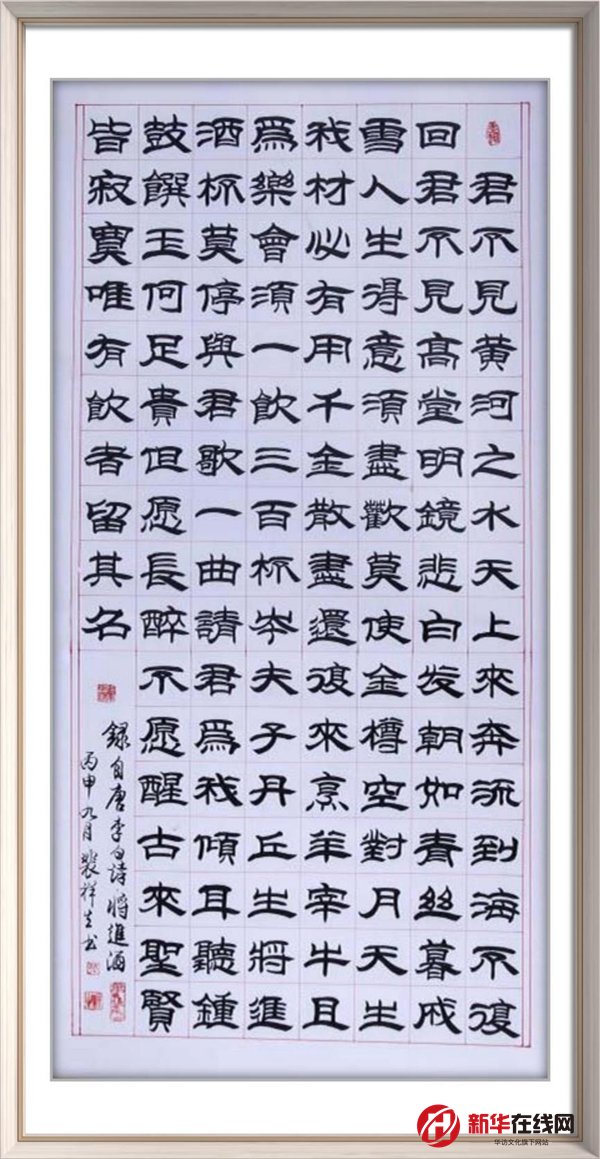 君不見黄河之水天上來奔流到海不復
回君不見髙堂明鏡悲白发朝如青丝暮成
雪人生得意須盡歡莫使金樽空對月天生
我材必有用千金散盡還復來烹羊宰牛且
爲樂會須一飲三百杯岑夫子丹丘生將進
酒杯莫停與君歌一曲請君爲我傾耳聽鍾
鼓饌玉何足貴但愿長醉不愿醒古來聖賢
皆寂寞唯有飲者留其名
録自唐李白詩將進酒
丙申九月裴祥生书
新华在线网
华访文化旗下网站